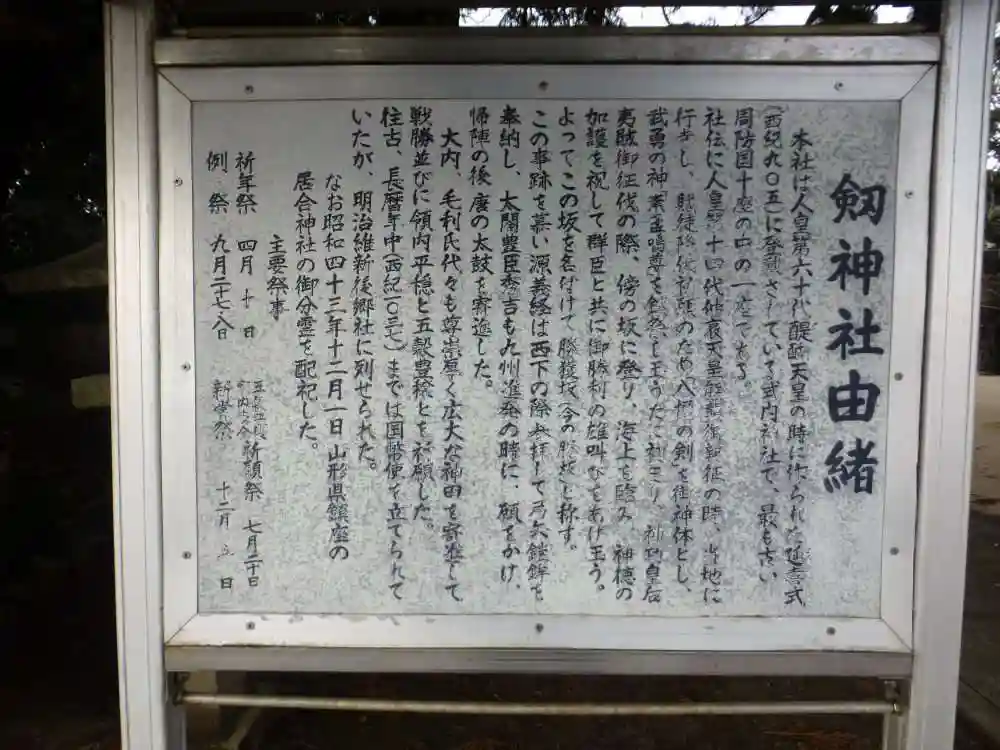 剱神社由緒
本社は人皇第六十代醍醐天皇の時に作られた延喜式
(西紀九〇五)に登載されていて式内社で、最も古い
周防国十座の中の一座である。
社伝に人皇第十四代仲哀天皇熊襲御親征の時、当地に
行幸し、賊徒降伏祈願のため八握の剣を御神体とし、
武勇の神素盞嗚尊を
夷賊御征伐の際、傍の坂に登り、海上を臨み、神徳の
加護を祝して群臣と共に御勝利の雄叫びをあげ玉う。
よってこの坂を名付けて勝
この事跡を慕い源義経は西下の際参拝して弓矢鎧鉾を
奉納し、太閤豊臣秀吉も九州進発の時に、願をかけ、
帰陣の後、度の太鼓を寄進した。
大内、毛利氏代々も尊崇厚く広大な神田を寄進して
戦勝並びに領内平穏と五穀豊稔とを祈願した。
往古、長暦年中(西紀一〇三七)までは国幣使を立てられて
いたが、明治維新後郷社に列せられた。
なお昭和四十三年十二月一日山形県鎮座の
居合神社の御分霊を配祀した。
主要祭事
祈年祭 四月 十 日
祈願祭 七月二十日
例 祭 九月二十七八日
新嘗祭 十二月 五 日